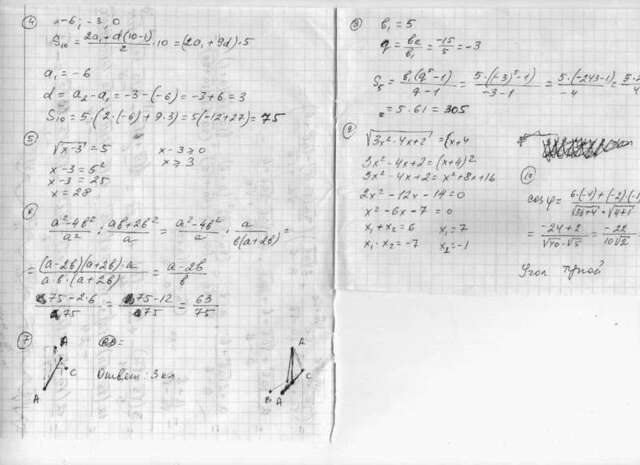 ④ -6; -3; 0
S₁₀ = (2a₁ + d(10-1))/2 · 10 = (2a₁ + 9d) · 5
a₁ = -6
d = a₂ - a₁ = -3 - (-6) = -3 + 6 = 3
S₁₀ = 5 · (2 · (-6) + 9 · 3) = 5(-12 + 27) = 75
⑤
√(x-3) = 5 x - 3 ≥ 0
x - 3 = 5² x ≥ 3
x - 3 = 25
x = 28
⑥
(a² - 4b²)/a² : (ab + 2b²)/a = (a² - 4b²)/a · a/(b(a+2b))
= ((a-2b)(a+2b) · a)/(a · b · (a+2b)) = (a-2b)/b
(75 - 2·6)/75 = (75 - 12)/75 = 63/75
⑦
A
C
A
Ответ: 3 кл.
A
C
B A
b₁ = 5
q = b₂/b₁ = -15/5 = -3
S₅ = b₁(q⁵ - 1)/(q - 1) = 5 · ((-3)⁵ - 1)/(-3 - 1) = 5 · (-243 - 1)/-4 =
= 5 · 61 = 305
⑨
√(3x² - 4x + 2) = (x + 4
3x² - 4x + 2 = (x + 4)²
3x² - 4x + 2 = x² + 8x + 16
2x² - 12x - 14 = 0
x² - 6x - 7 = 0
x₁ + x₂ = 6 x₁ = 7
x₁ · x₂ = -7 x₂ = -1
⑩
cos φ = (6 · (-4) + (-2) · (-1
√(36+4) · √(4+1
= (-24 + 2)/(√40 · √5) = -22/(10√2)
Угол тупой